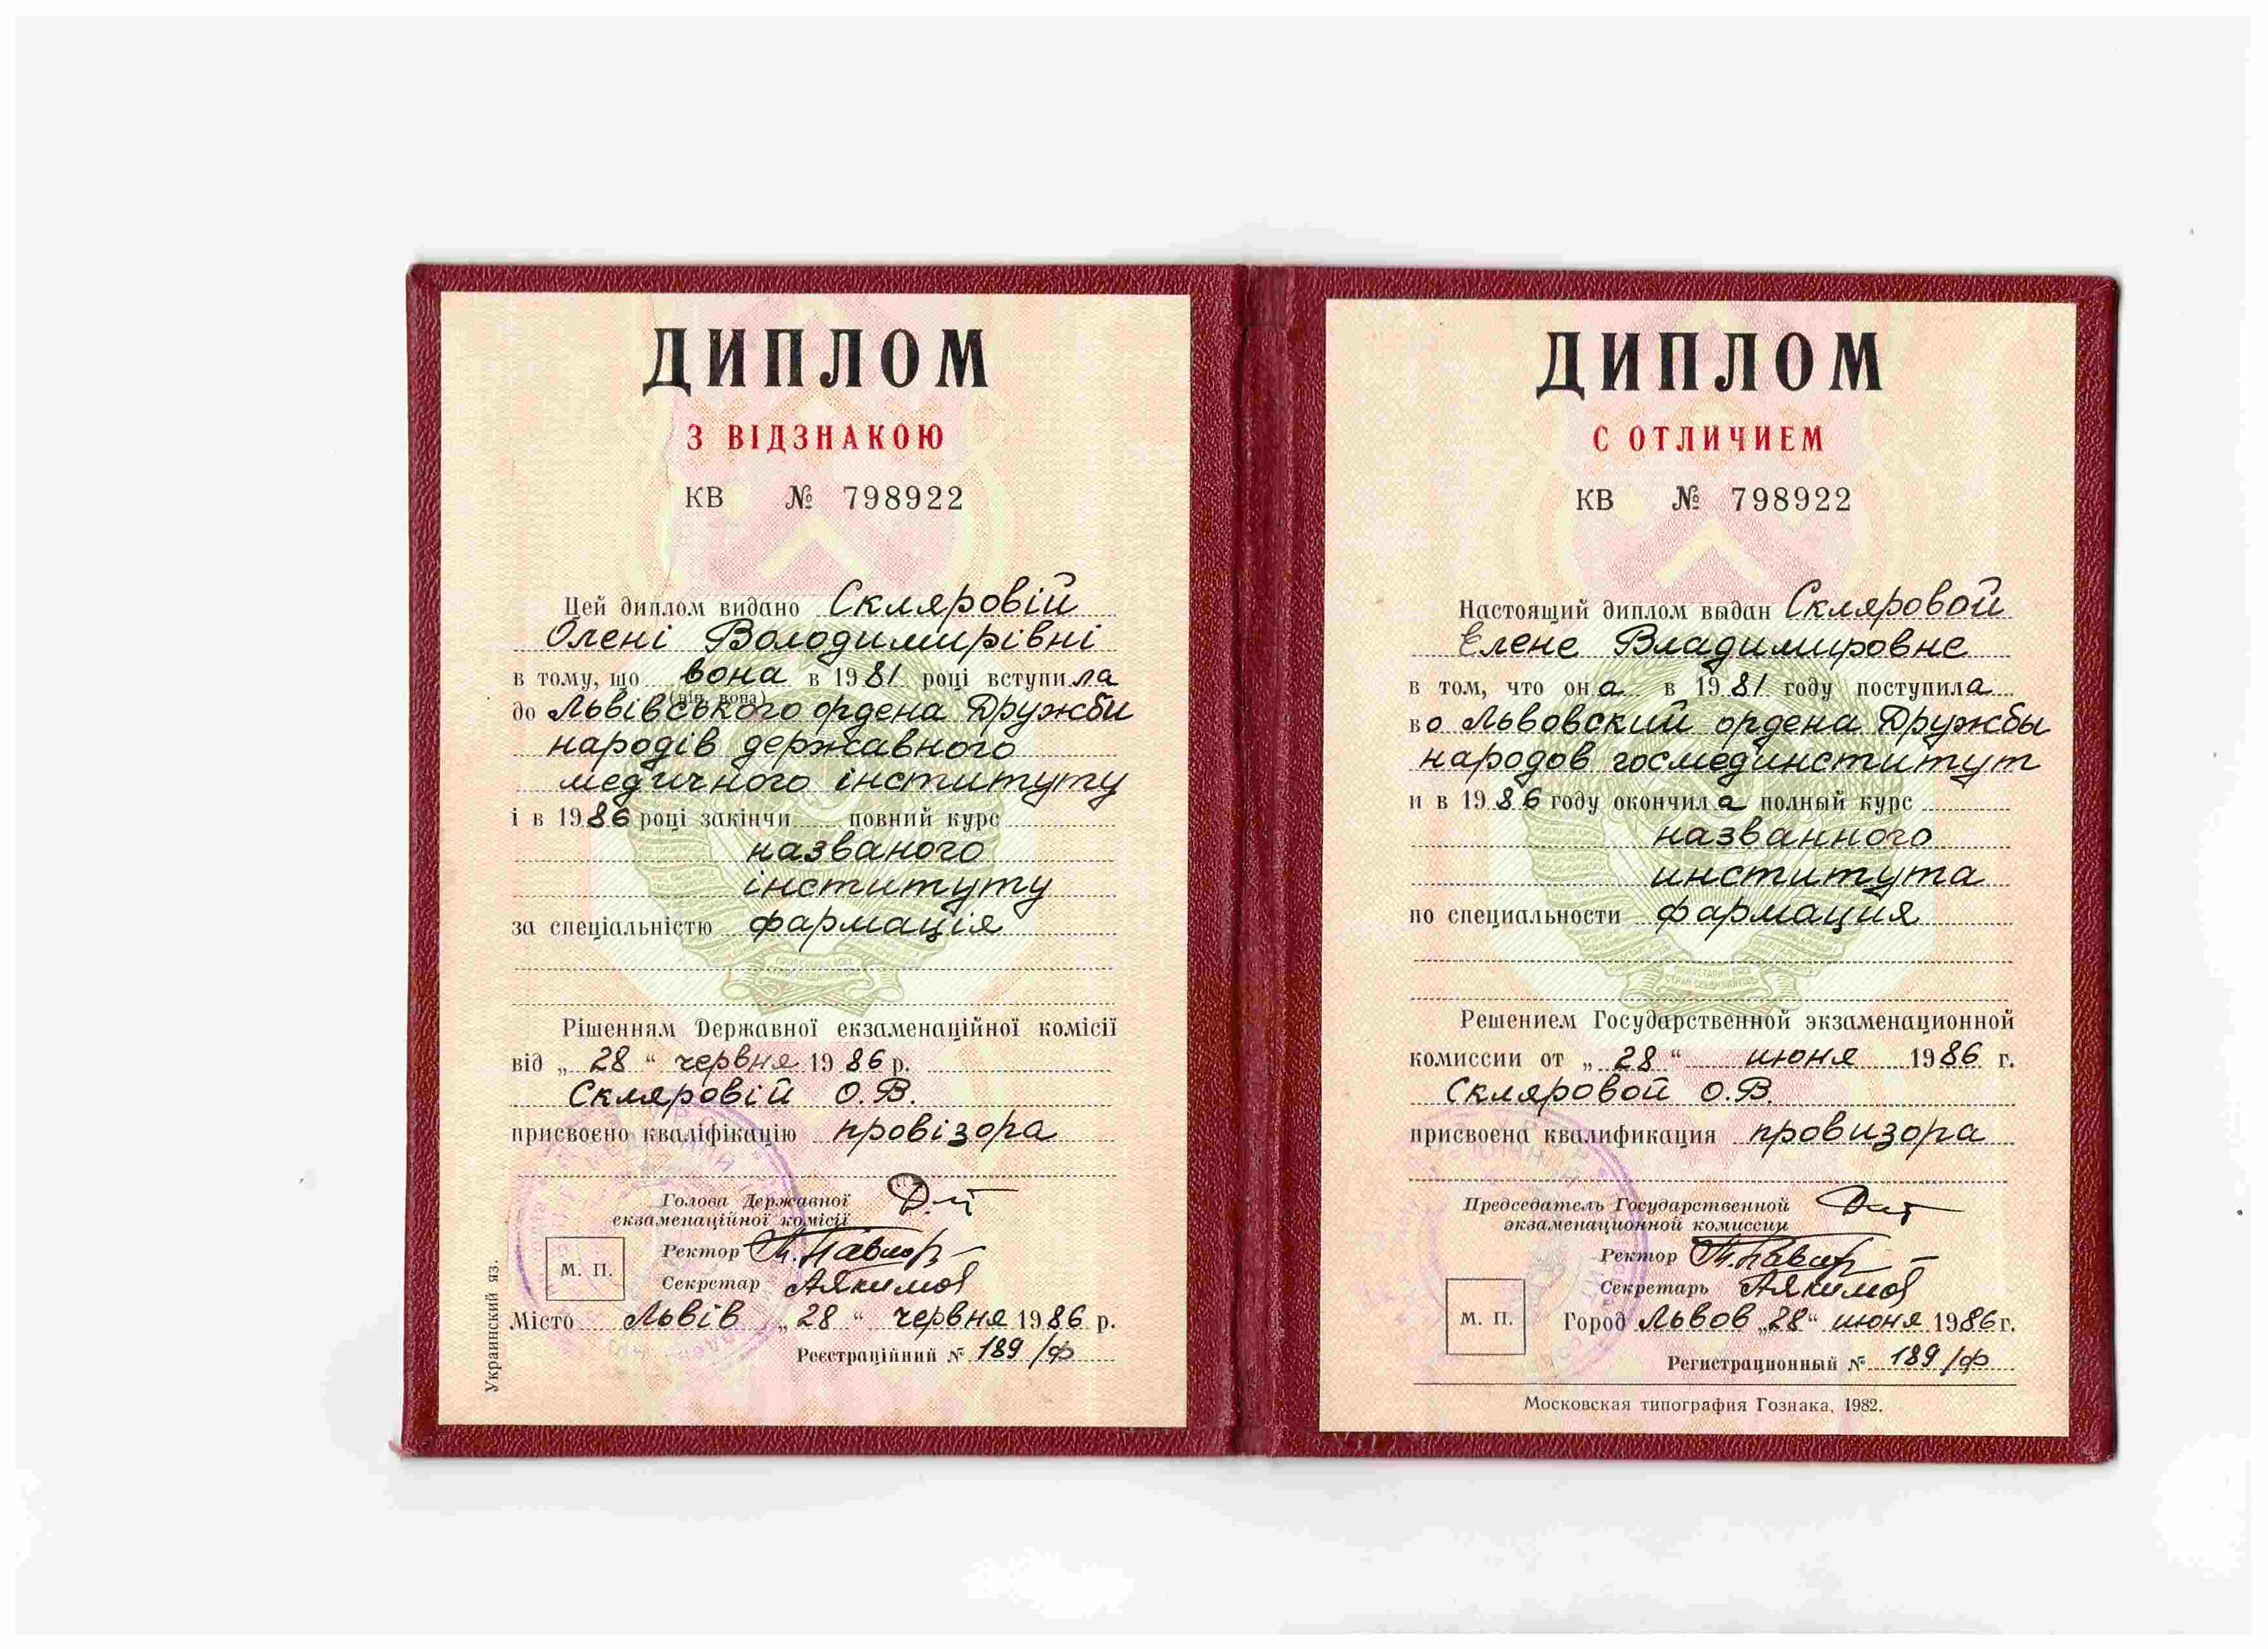 ДИПЛОМ
З ВІДЗНАКОЮ
КВ № 798922
Цей диплом видано Скляровій
Олені Володимирівні
в тому, що вона в 1981 році вступила
(він, вона)
до Львівського ордена Дружби
народів державного
медичного інституту
і в 1986 році закінчи повний курс
названого
інституту
за спеціальністю фармація
Рішенням Державної екзаменаційної комісії
від „28“ червня 1986 р.
Скляровій О.В.
присвоєно кваліфікацію провізора
Голова Державної
екзаменаційної комісії
Ректор
М. П.
Секретар
Місто Львів „28“ червня 1986 р.
Реєстраційний № 189/ф
Украинский яз.
ДИПЛОМ
С ОТЛИЧИЕМ
КВ № 798922
Настоящий диплом выдан Скляровой
Елене Владимировне
в том, что она в 1981 году поступила
во Львовский ордена Дружбы
народов госмединститут
и в 1986 году окончила полный курс
названного
института
по специальности фармация
ПРОЛЕТАРИИ ВСЕХ
СТРАН СОЕДИНЯЙТЕСЬ
Решением Государственной экзаменационной
комиссии от „28“ июня 1986 г.
Скляровой О.В.
присвоена квалификация провизора
Председатель Государственной
экзаменационной комиссии
Ректор
Секретарь
М. П.
Город Львов „28“ июня 1986 г.
Регистрационный № 189/ф
Московская типография Гознака, 1982.